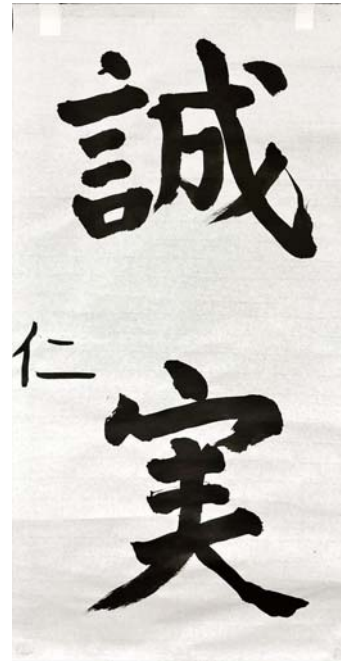 誠実
仁